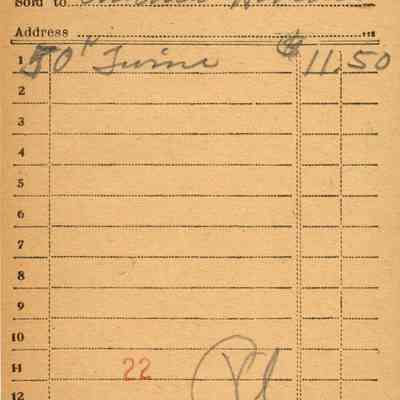 Sold to
Address
1 50 Twine $ 11.50
2
3
4
5
6
7
8
9
10
11 22
12